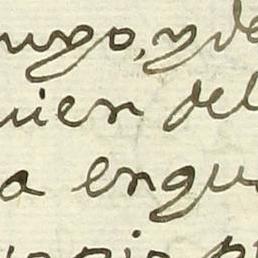 uyo, y de
uien del
a engu